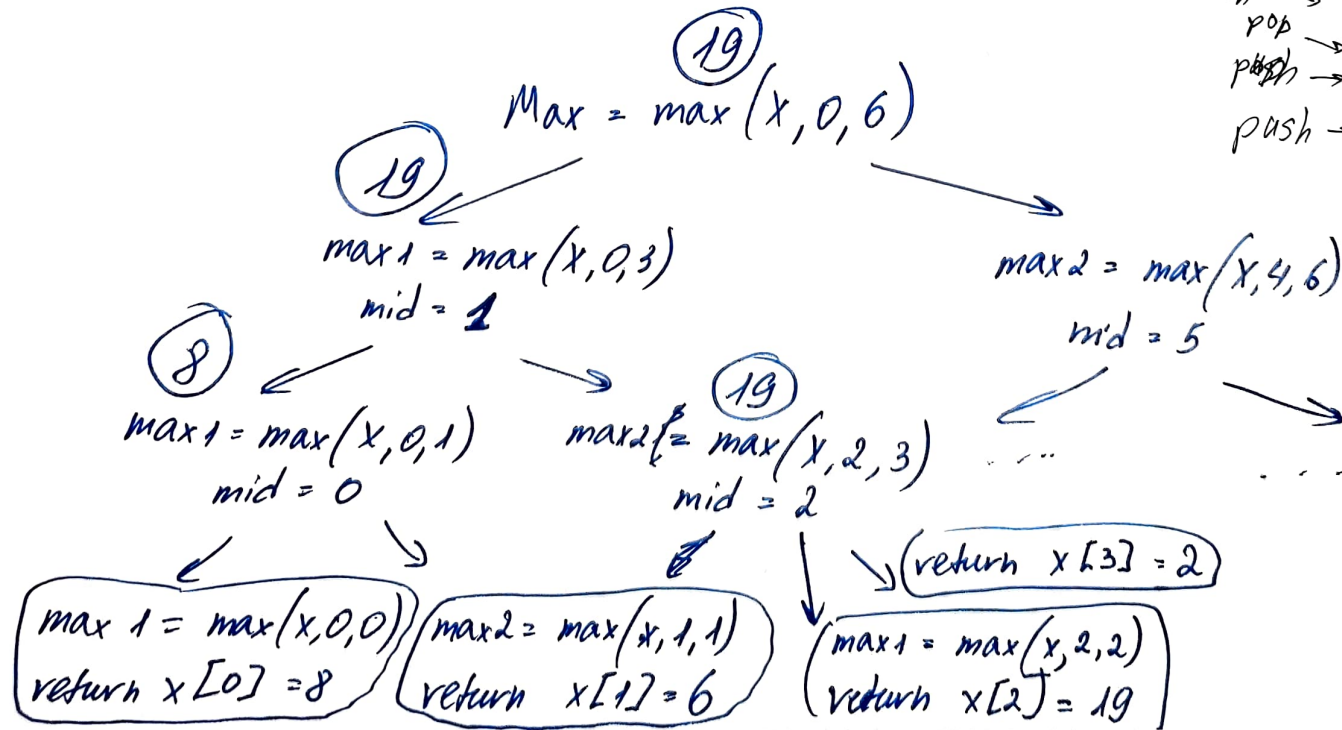 19
pop →
push →
push -
Max = max(X,0,6)
19
max1 = max(X,0,3)
mid = 1
max2 = max(X,4,6)
mid = 5
8
max1 = max(X,0,1)
mid = 0
19
max2 = max(X,2,3)
mid = 2
.....
....
return x[3] = 2
max 1 = max(x,0,0)
return x[0] = 8
max2 = max(x,1,1)
return x[1] = 6
max1 = max(x,2,2)
return x[2] = 19